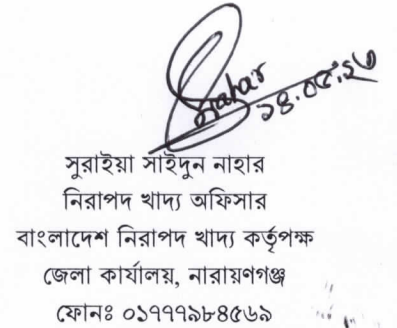 Nahar
১৪.০৫.২৩
সুরাইয়া সাইদুন নাহার
নিরাপদ খাদ্য অফিসার
বাংলাদেশ নিরাপদ খাদ্য কর্তৃপক্ষ
জেলা কার্যালয়, নারায়ণগঞ্জ
ফোনঃ ০১৭৭৭৯৮৪৫৬৯